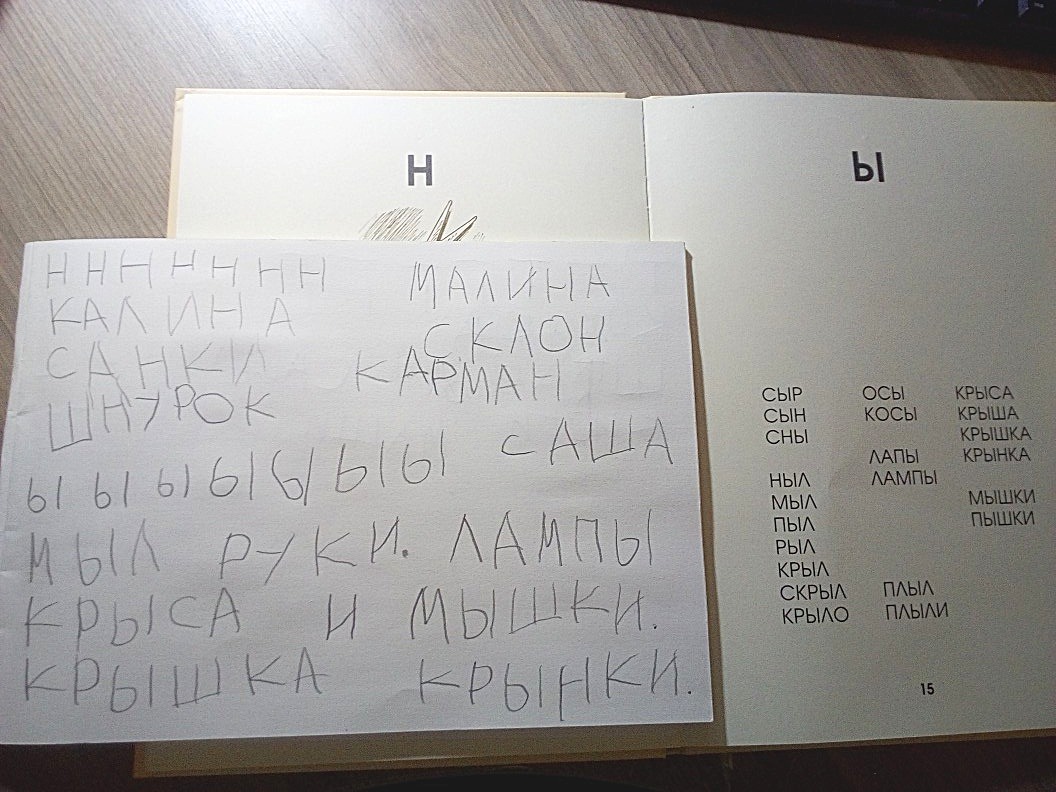 Н
Ы
Н Н Н Н Н Н Н МАЛИНА
КАЛИНА СКЛОН
САНКИ КАРМАН
ШНУРОК
Ы Ы Ы Ы Ы Ы Ы САША
МЫЛ РУКИ. ЛАМПЫ
КРЫСА И МЫШКИ.
КРЫШКА КРЫНКИ.
СЫР ОСЫ КРЫСА
СЫН КОСЫ КРЫША
СНЫ КРЫШКА
ЛАПЫ КРЫНКА
НЫЛ ЛАМПЫ
МЫЛ МЫШКИ
ПЫЛ ПЫШКИ
РЫЛ
КРЫЛ
СКРЫЛ ПЛЫЛ
КРЫЛО ПЛЫЛИ
15